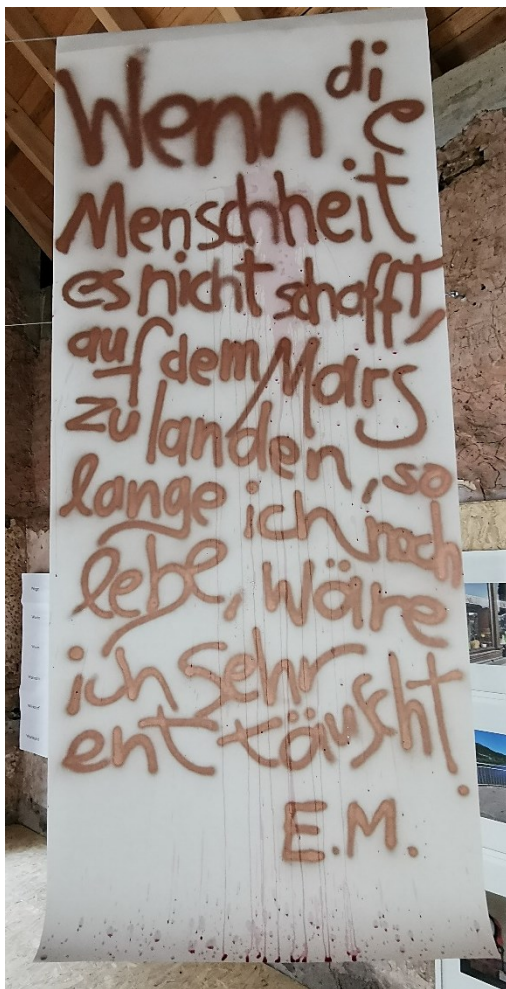 Wenn die
Menschheit
es nicht schafft,
auf dem Mars
zu landen, so
lange ich noch
lebe, wäre
ich sehr
enttäuscht.
E.M.